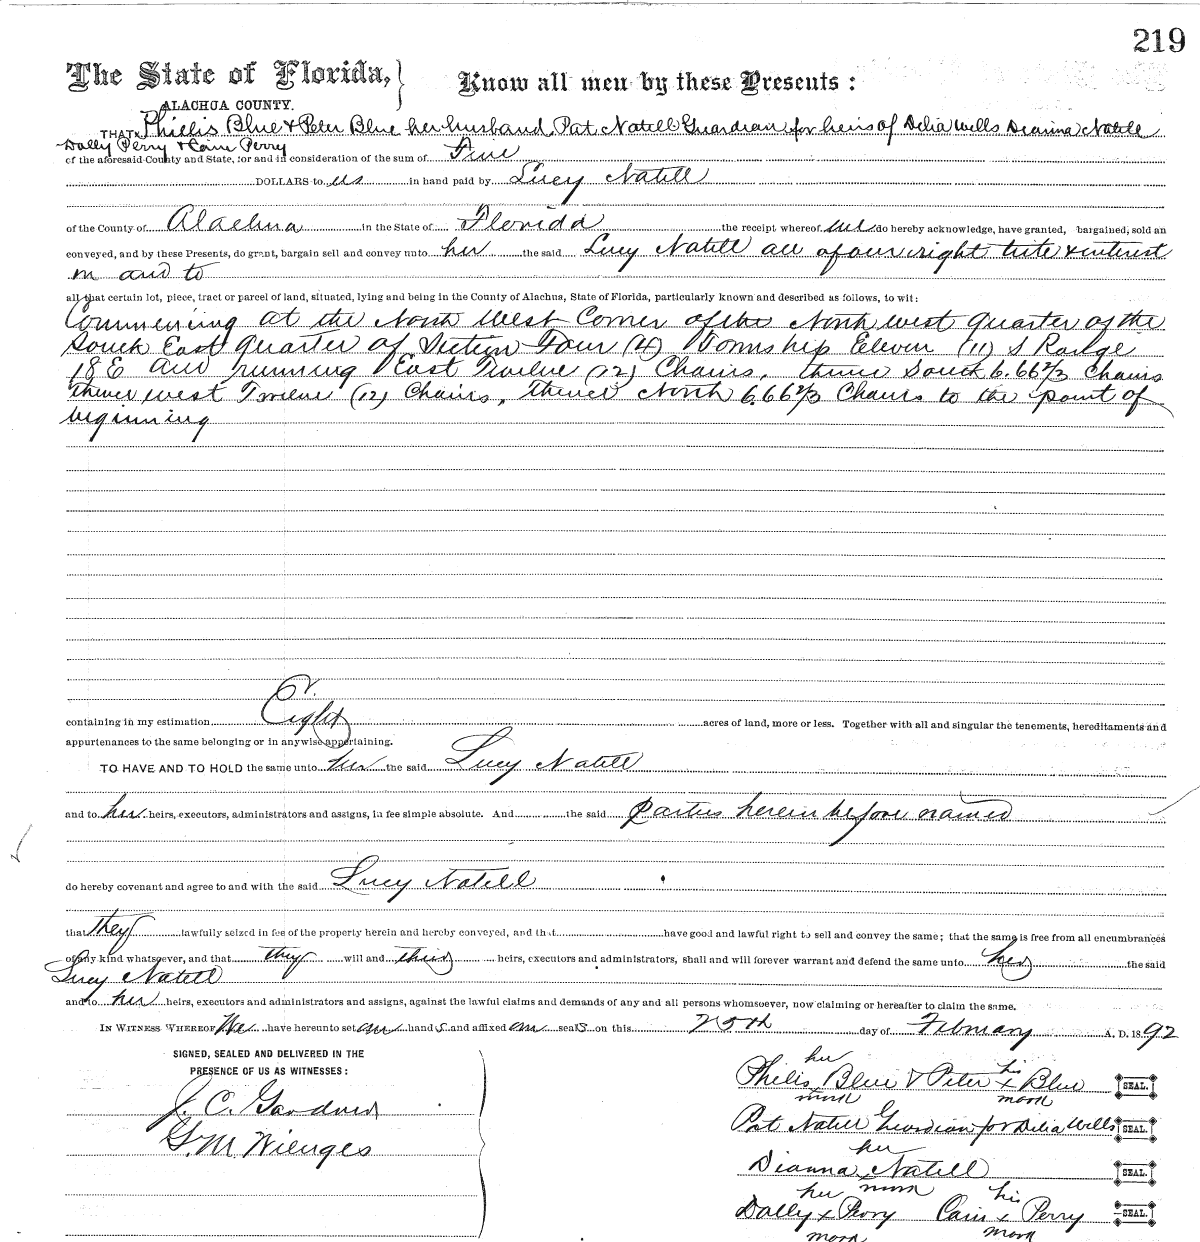 219
The State of Florida, Know all men by these Presents:
ALACHUA COUNTY.
THAT Phillis Blue & Peter Blue her husband, Pat Natell Guardian for heirs of Delia Wells Dianna Natell
Dally Perry & Cain Perry
of the aforesaid County and State, for and in consideration of the sum of Five
DOLLARS to us in hand paid by Lucy Natell
of the County of Alachua in the State of Florida the receipt whereof we do hereby acknowledge, have granted, bargained, sold an
conveyed, and by these Presents, do grant, bargain sell and convey unto her the said Lucy Natell all of our right title & interest
in and to
all that certain lot, piece, tract or parcel of land, situated, lying and being in the County of Alachua, State of Florida, particularly known and described as follows, to wit:
Commencing at the North West Corner of the North west quarter of the
South East quarter of Section Four (4) Township Eleven (11) S Range
18 E and running East Twelve (12) Chains, thence South 6.66 2/3 Chains
thence west Twelve (12) Chains, thence North 6.66 2/3 Chains to the point of
beginning
containing in my estimation Eight acres of land, more or less. Together with all and singular the tenements, hereditaments and
appurtenances to the same belonging or in anywise appertaining.
TO HAVE AND TO HOLD the same unto her the said Lucy Natell
and to her heirs, executors, administrators and assigns, in fee simple absolute. And the said parties herein before named
do hereby covenant and agree to and with the said Lucy Natell
that they lawfully seized in fee of the property herein and hereby conveyed, and that have good and lawful right to sell and convey the same; that the same is free from all encumbrances
of any kind whatsoever, and that they will and their heirs, executors and administrators, shall and will forever warrant and defend the same unto her the said
Lucy Natell
and to her heirs, executors and administrators and assigns, against the lawful claims and demands of any and all persons whomsoever, now claiming or hereafter to claim the same.
IN WITNESS WHEREOF We have hereunto set our hands and affixed our seals on this 25th day of February A. D. 1892
SIGNED, SEALED AND DELIVERED IN THE
PRESENCE OF US AS WITNESSES:
J. C. Gardner
G. M. Wienges
her his
Philis Blue & Peter x Blue SEAL.
mark mark
Pat Natell Guardian for Delia Wells SEAL.
her
Dianna x Natell SEAL.
mark
her his
Dally x Perry Cain x Perry SEAL.
mark mark